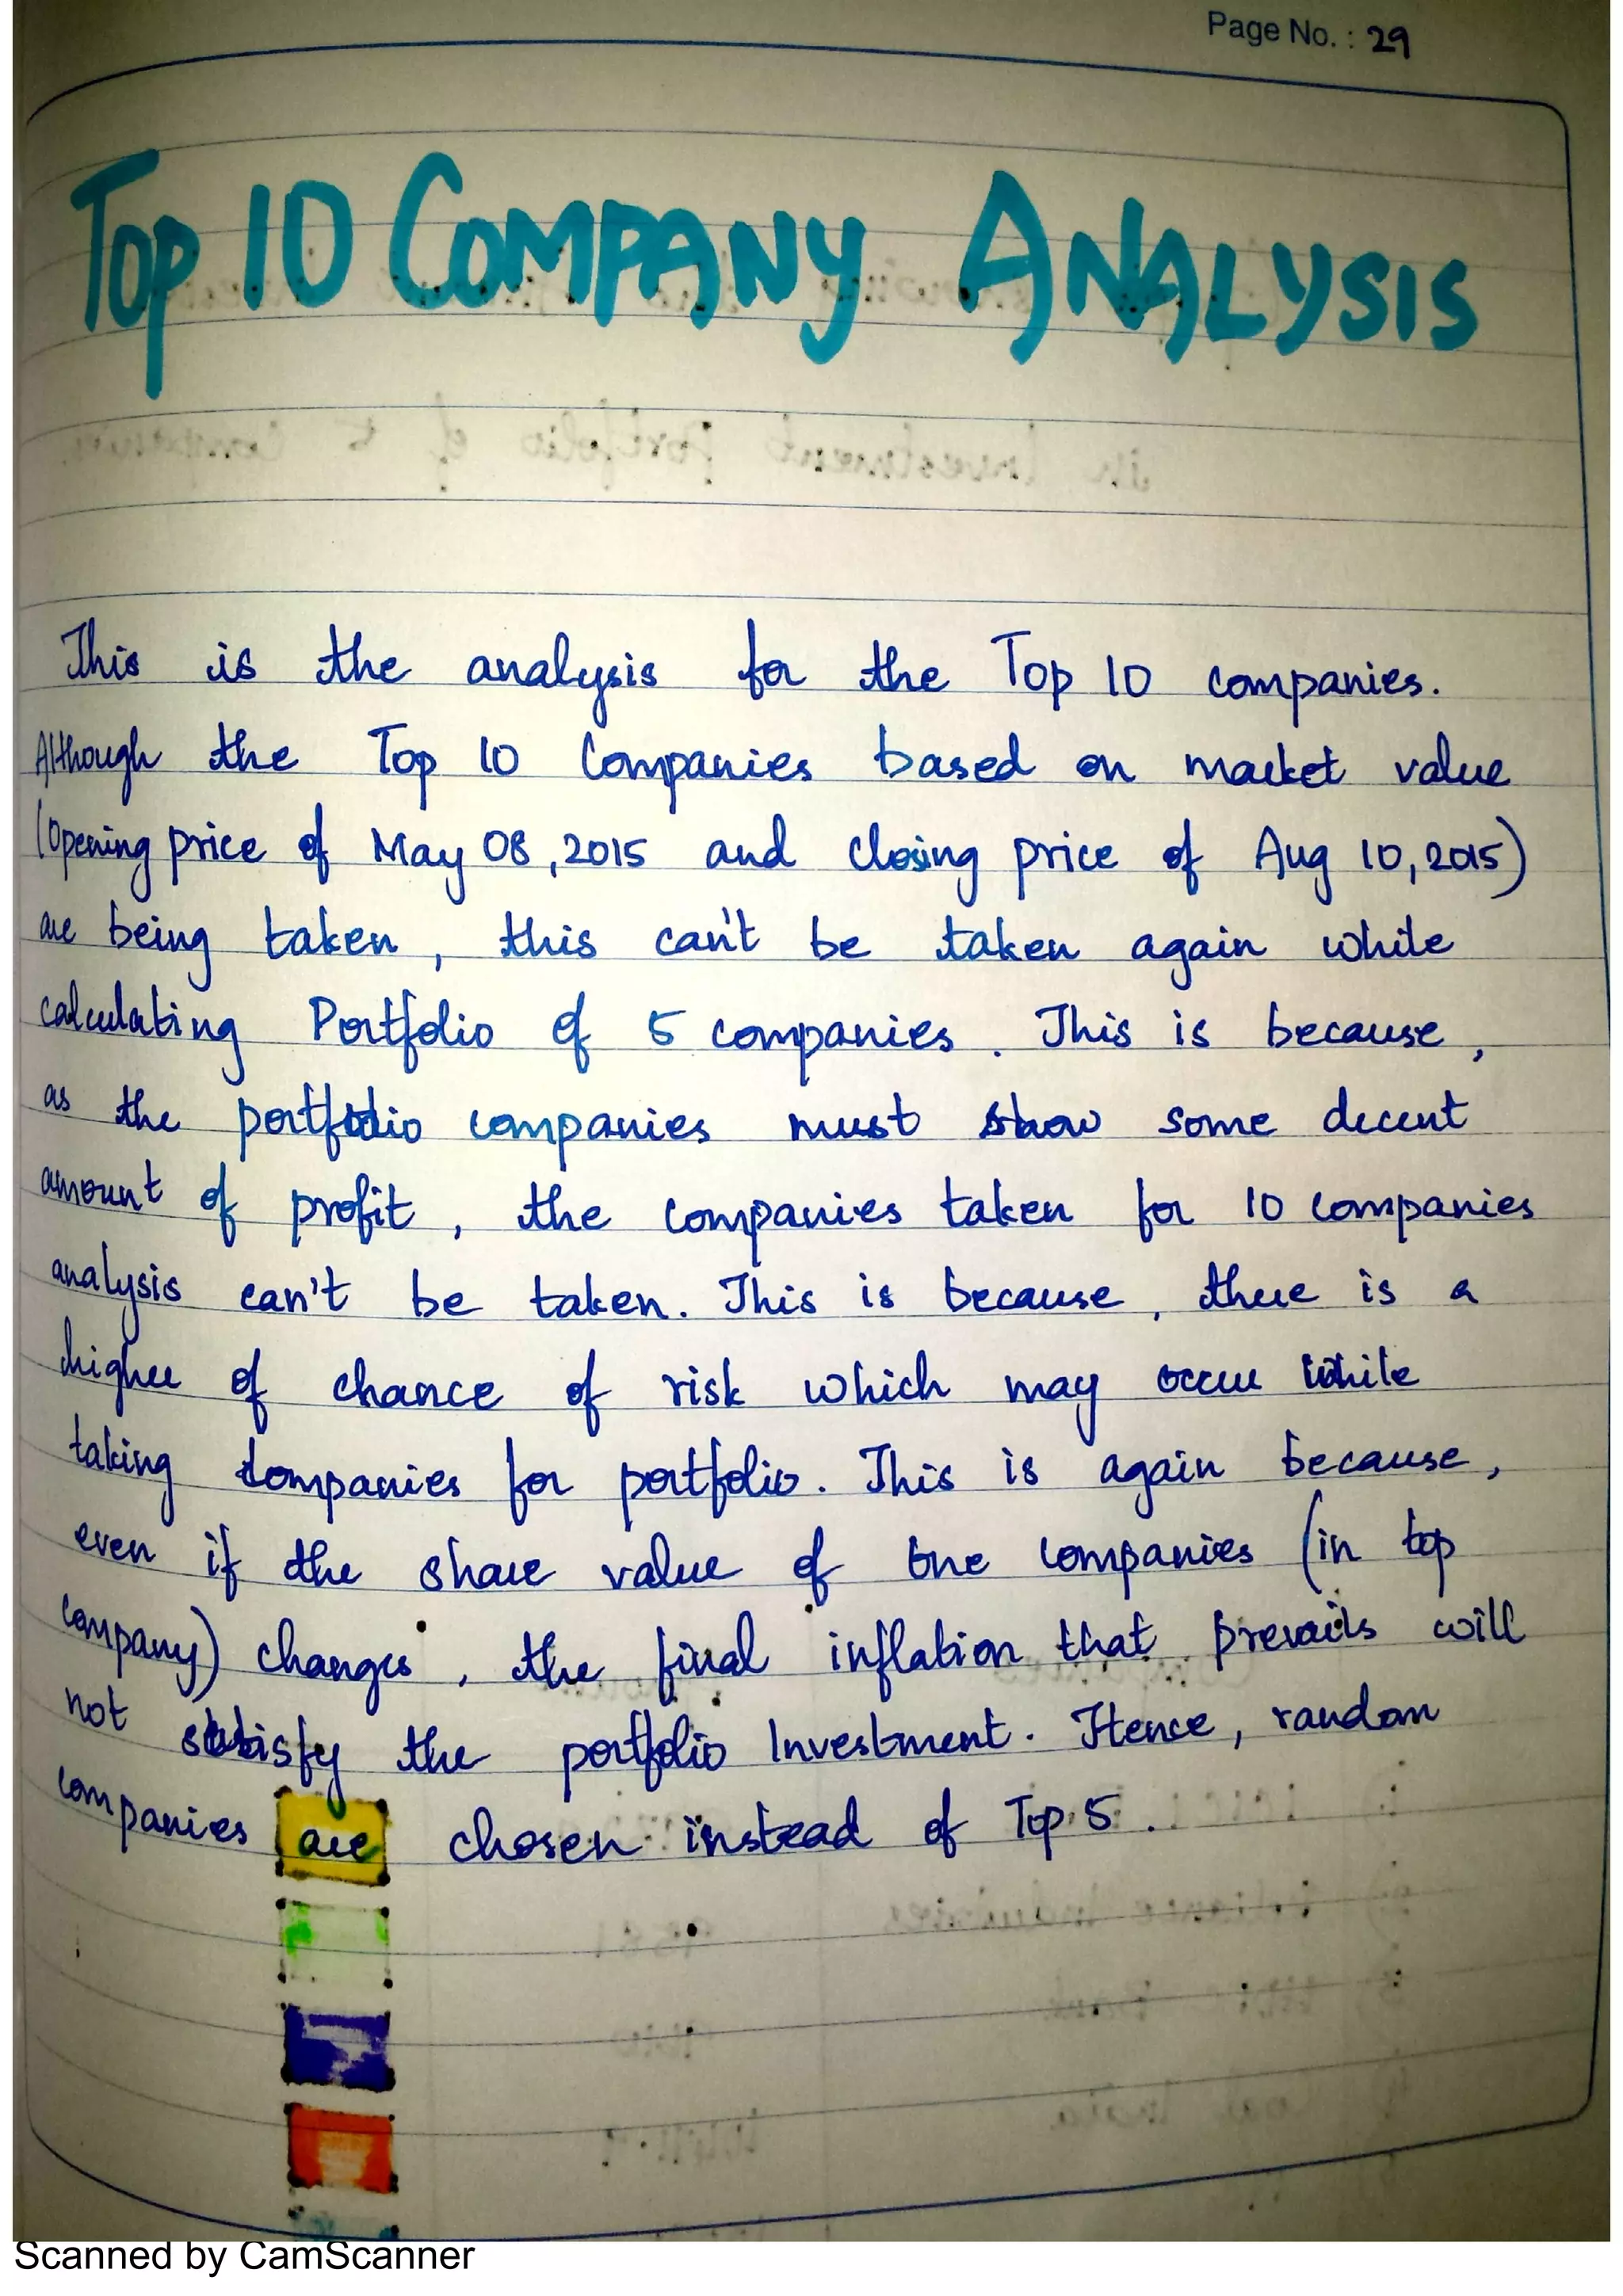 Page No. : 29
TOP 10 COMPANY ANALYSIS
This is the analysis for the Top 10 companies.
Although the Top 10 Companies based on market value
(Opening price of May 08, 2015 and closing price of Aug 10, 2015)
are being taken, this can't be taken again while
calculating Portfolio of 5 companies. This is because,
as the portfolio companies must show some decent
amount of profit, the companies taken for 10 companies
analysis can't be taken. This is because, there is a
higher of chance of risk which may occur while
taking companies for portfolio. This is again because,
even if the share value of one companies (in top
company) changes, the final inflation that prevails will
not satisfy the portfolio Investment. Hence, random
companies are chosen instead of Top 5.
Scanned by CamScanner